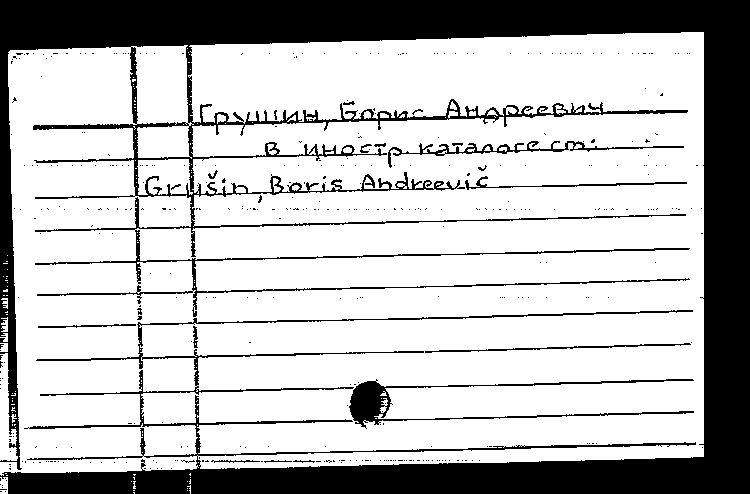 Грушин, Борис Андреевич
в иностр. каталоге см:
Grušin, Boris Andreevič